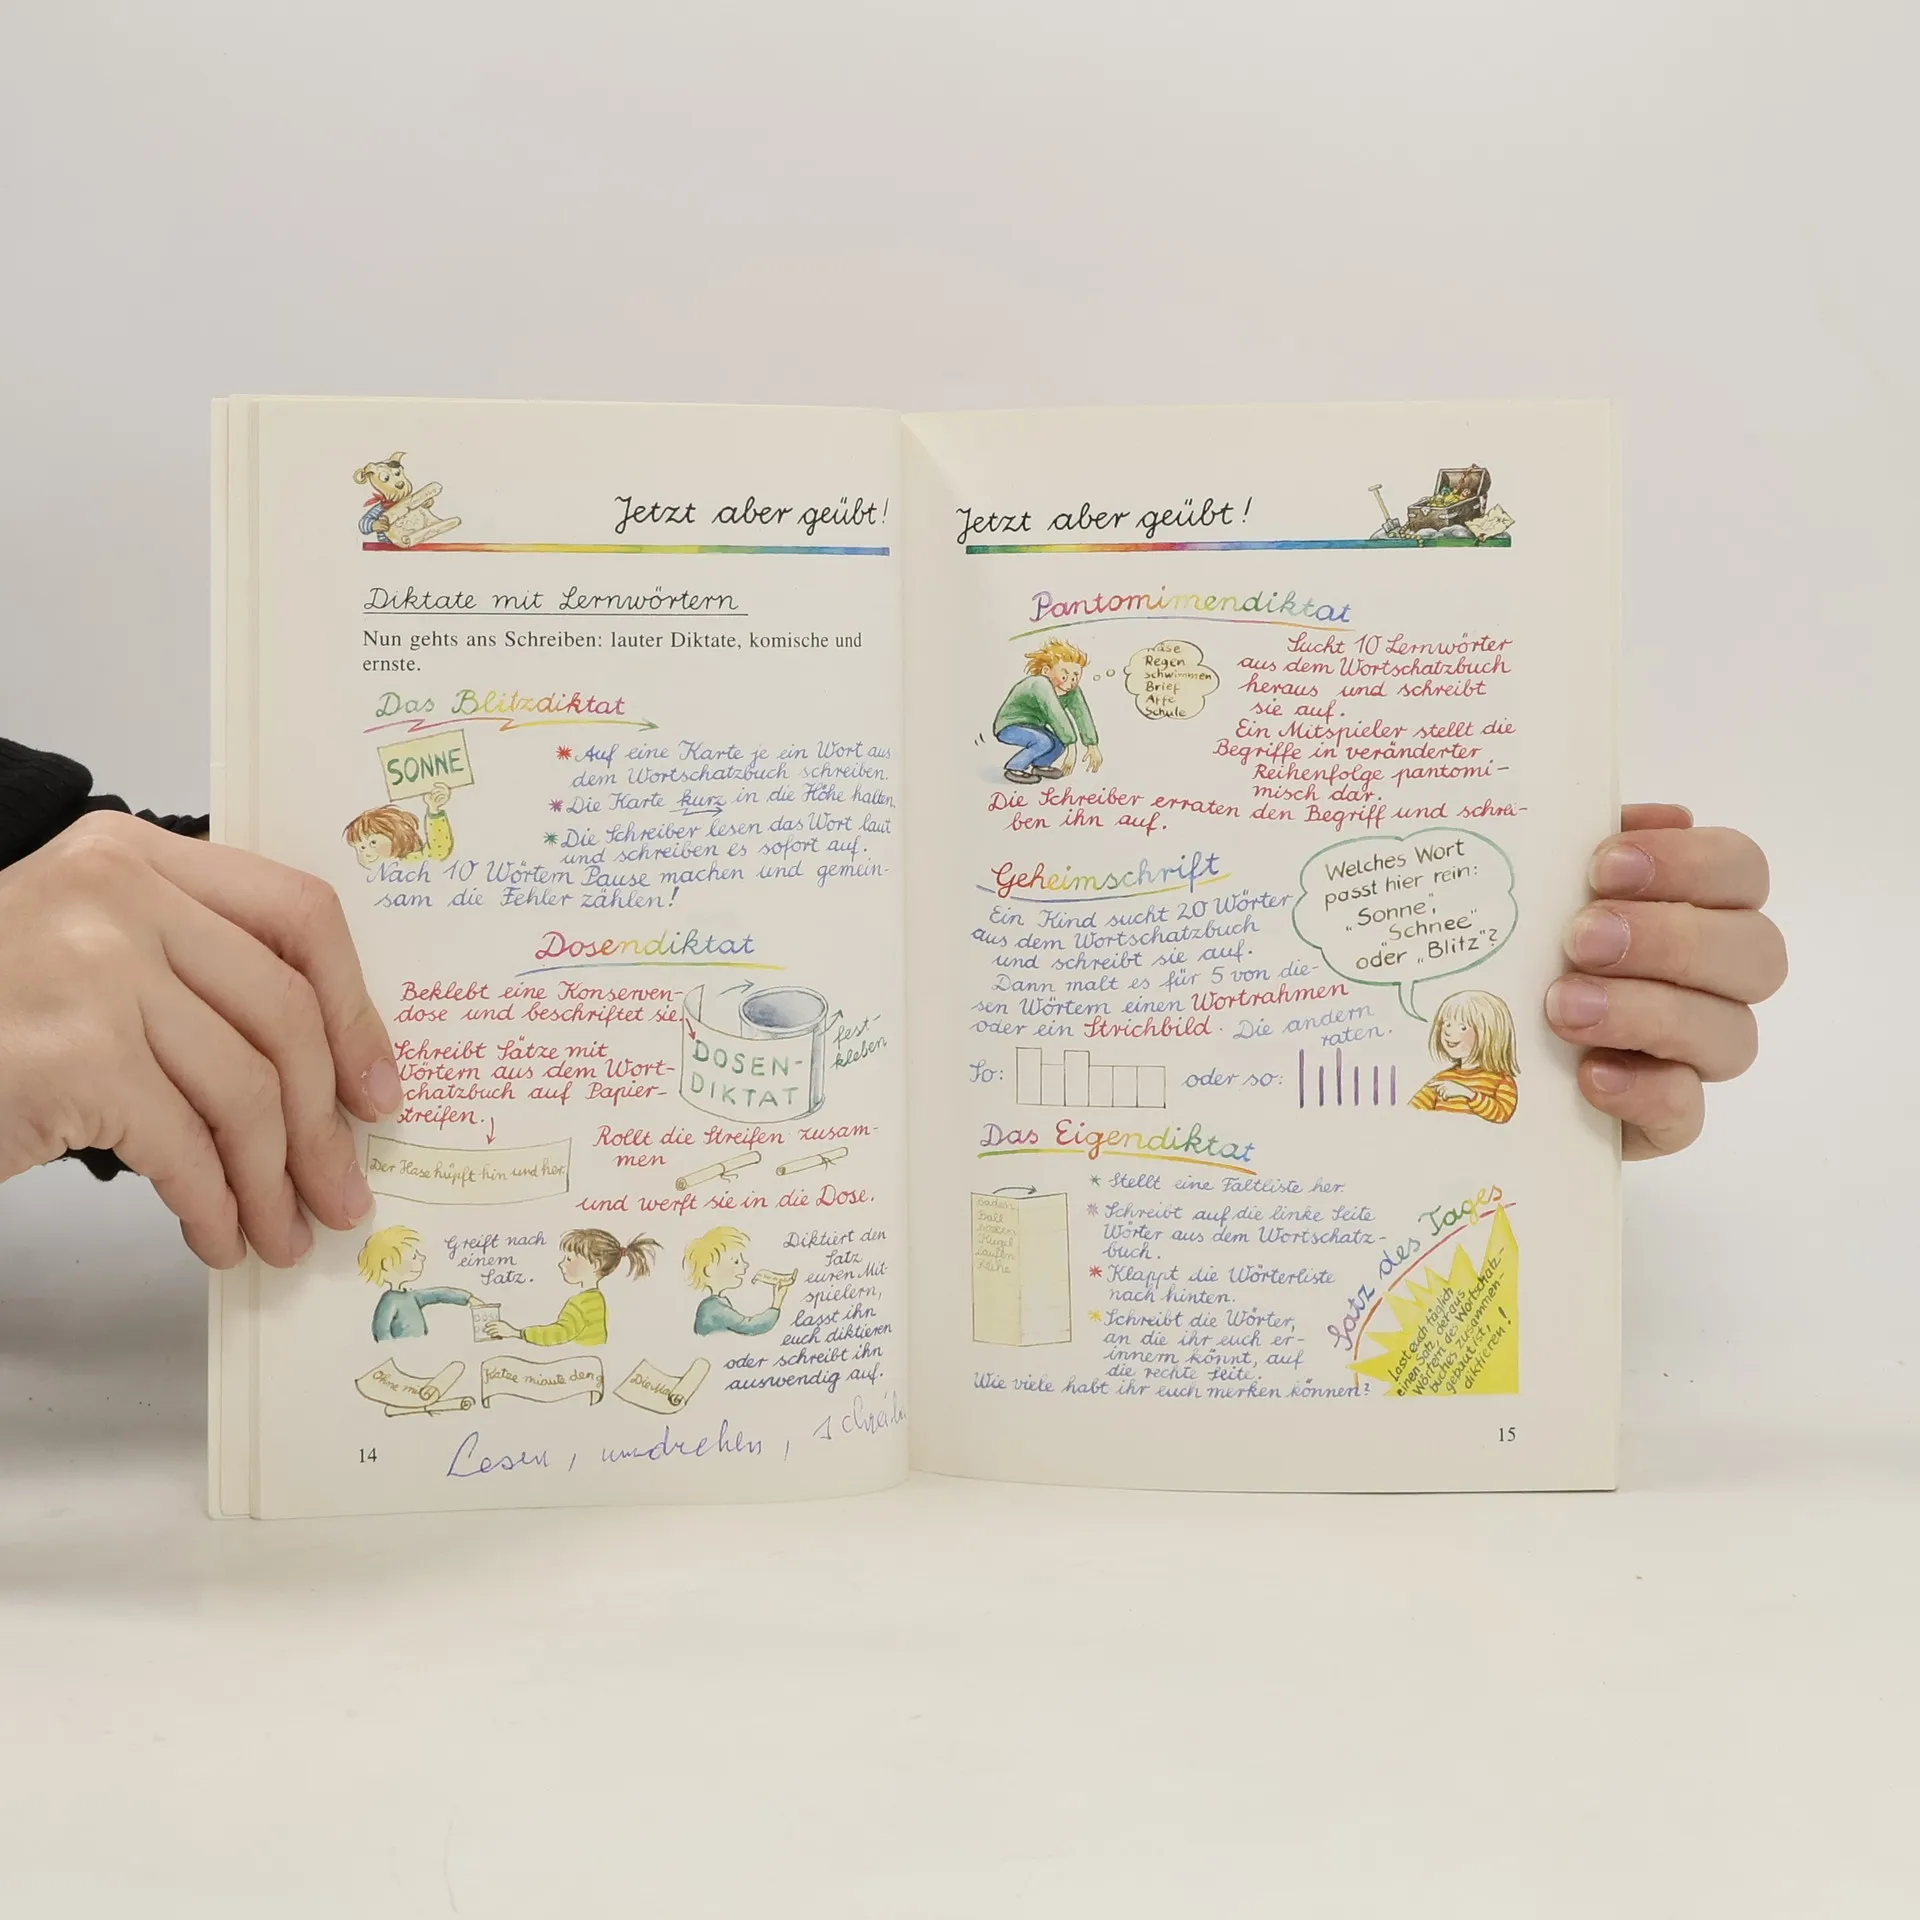 Jetzt aber geübt!
Diktate mit Lernwörtern
Nun gehts ans Schreiben: lauter Diktate, komische und
ernste.
Das Blitzdiktat
SONNE
* Auf eine Karte je ein Wort aus
dem Wortschatzbuch schreiben.
* Die Karte kurz in die Höhe halten.
* Die Schreiber lesen das Wort laut
und schreiben es sofort auf.
Nach 10 Wörtern Pause machen und gemein-
sam die Fehler zählen!
Dosendiktat
Beklebt eine Konserven-
dose und beschriftet sie.
fest-
kleben
DOSEN-
DIKTAT
Schreibt Sätze mit
Wörtern aus dem Wort-
schatzbuch auf Papier-
streifen.
Der Hase hüpft hin und her.
Rollt die Streifen zusam-
men
und werft sie in die Dose.
Greift nach
einem
Satz.
Diktiert den
Satz
euren Mit-
spielern,
lasst ihn
euch diktieren
oder schreibt ihn
auswendig auf.
Ohne mi
Katze miaute den
Die Ma
Lesen, umdrehen,
14
Jetzt aber geübt!
Pantomimendiktat
Nase
Regen
schwimmen
Brief
Affe
Schule
Sucht 10 Lernwörter
aus dem Wortschatzbuch
heraus und schreibt
sie auf.
Ein Mitspieler stellt die
Begriffe in veränderter
Reihenfolge pantomi-
misch dar.
Die Schreiber erraten den Begriff und schrei-
ben ihn auf.
Geheimschrift
Ein Kind sucht 20 Wörter
aus dem Wortschatzbuch
und schreibt sie auf.
Dann malt es für 5 von die-
sen Wörtern einen Wortrahmen
oder ein Strichbild. Die andern
raten.
Welches Wort
passt hier rein:
„Sonne",
„Schnee"
oder „Blitz"?
So:
oder so:
Das Eigendiktat
* Stellt eine Faltliste her.
* Schreibt auf die linke Seite
Wörter aus dem Wortschatz-
buch.
* Klappt die Wörterliste
nach hinten.
* Schreibt die Wörter,
an die ihr euch er-
innern könnt, auf
die rechte Seite.
Wie viele habt ihr euch merken können?
baden
Ball
Kugel
laufen
Satz des Tages
Lasst euch täglich
einen Satz, der aus
Wörtern des Wortschatz-
buches zusammen-
gebaut ist,
diktieren!
15